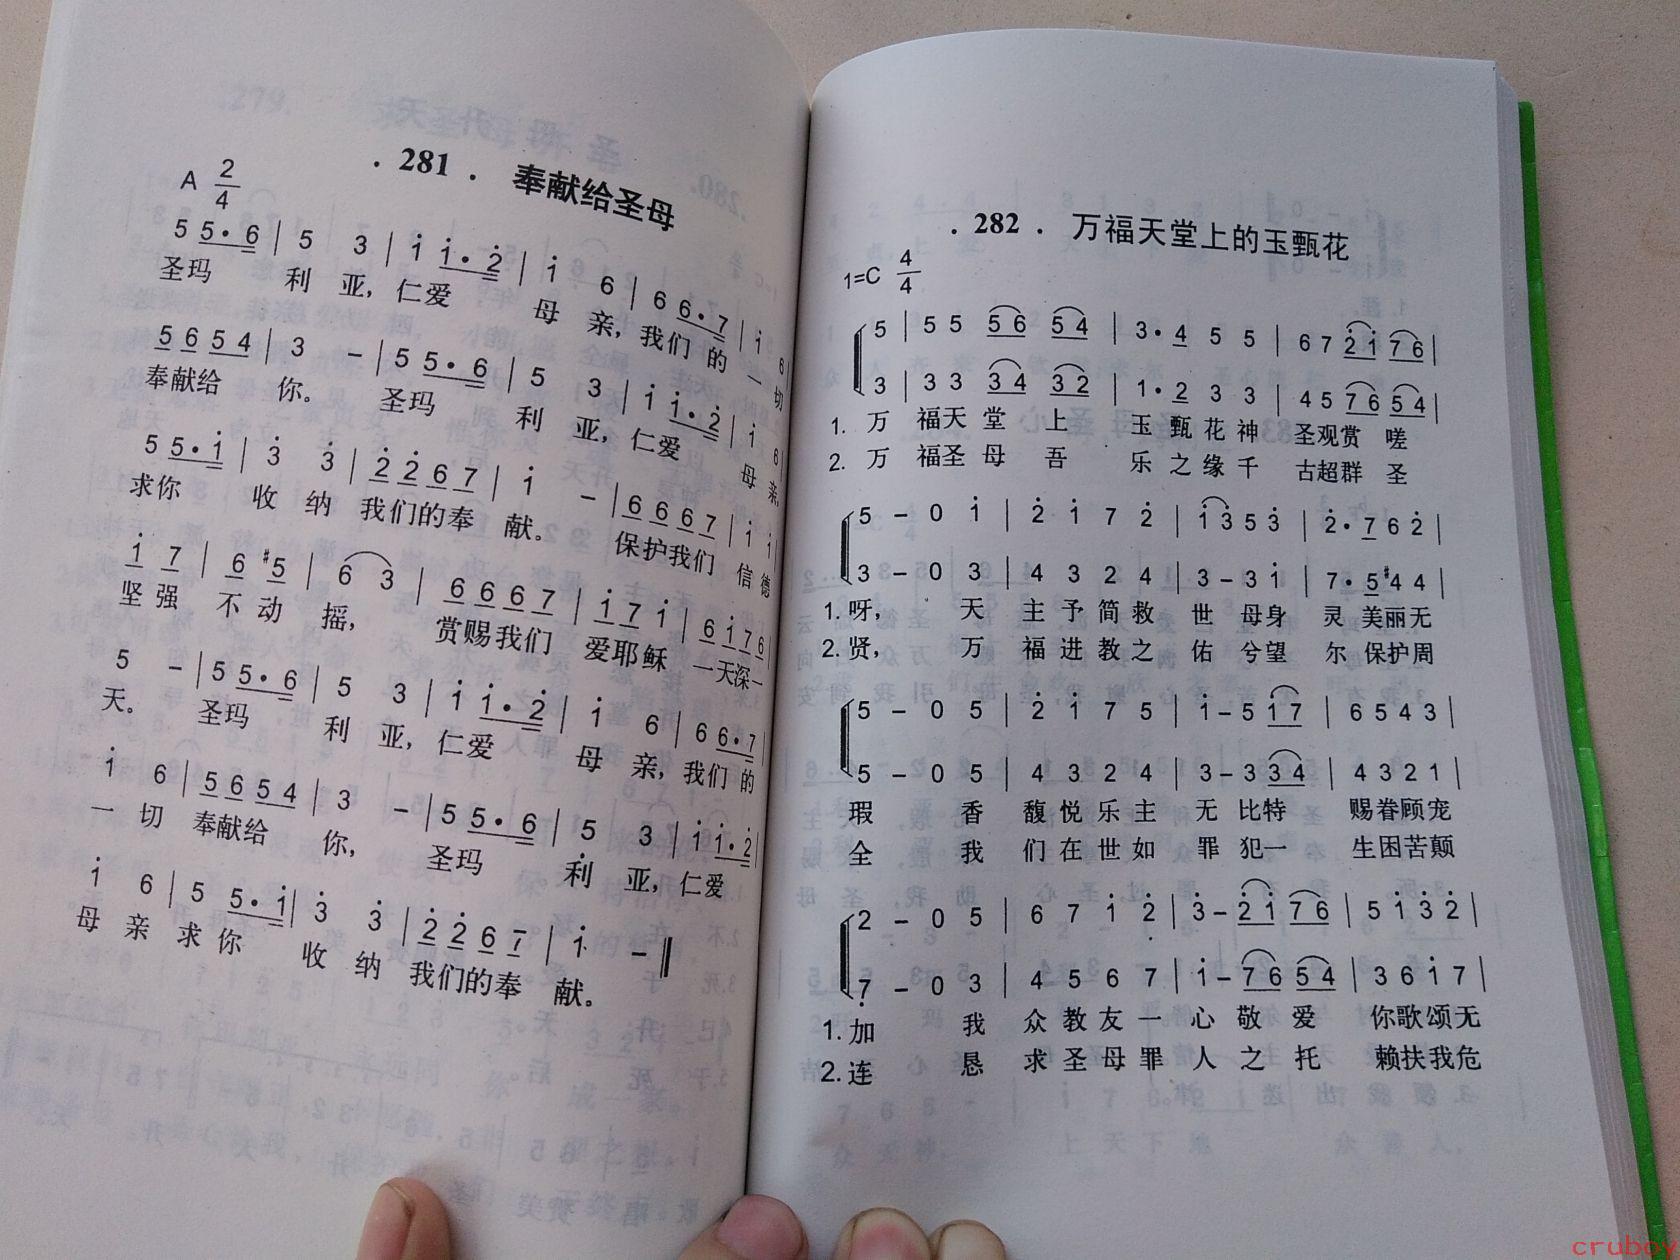 . 281 . 奉献给圣母
A 2/4
5 5·6 | 5 3 | i i·2 | i 6 | 6 6·7 | i 6 |
圣玛 利 亚, 仁爱 母 亲, 我们 的 一 切
5 6 5 4 | 3 - | 5 5·6 | 5 3 | i i·2 | i 6 |
奉献给 你。 圣玛 利 亚, 仁爱 母 亲,
5 5·i | 3 3 | 2 2 6 7 | i - | 6 6 6 7 | i i |
求你 收 纳 我们的奉 献。 保护我们 信 德
i 7 | 6 #5 | 6 3 | 6 6 6 7 | i 7 i | 6 i 7 6 |
坚 强 不 动 摇, 赏赐我们 爱耶稣 一天深一
5 - | 5 5·6 | 5 3 | i i·2 | i 6 | 6 6·7 |
天。 圣玛 利 亚, 仁爱 母 亲, 我们 的
i 6 | 5 6 5 4 | 3 - | 5 5·6 | 5 3 | i i·2 |
一 切 奉献给 你, 圣玛 利 亚, 仁爱
i 6 | 5 5·i | 3 3 | 2 2 6 7 | i - ‖
母 亲 求 你 收 纳 我们的奉 献。
. 282 . 万福天堂上的玉甄花
1=C 4/4
5 | 5 5 5 6 5 4 | 3·4 5 5 | 6 7 2 i 7 6 |
3 | 3 3 3 4 3 2 | 1·2 3 3 | 4 5 7 6 5 4 |
1. 万 福天 堂 上 玉 甄 花 神 圣观赏 嗟
2. 万 福圣 母 吾 乐 之 缘 千 古超群 圣
5 - 0 i | 2 i 7 2 | i 3 5 3 | 2·7 6 2 |
3 - 0 3 | 4 3 2 4 | 3 - 3 i | 7·5 #4 4 |
1. 呀, 天 主 予 简 救 世 母身 灵 美丽无
2. 贤, 万 福 进 教 之 佑 兮望 尔 保护周
5 - 0 5 | 2 i 7 5 | i - 5 i 7 | 6 5 4 3 |
5 - 0 5 | 4 3 2 4 | 3 - 3 3 4 | 4 3 2 1 |
瑕 香 馥 悦 乐 主 无 比特 赐眷顾宠
全 我 们 在 世 如 罪 犯一 生困苦颠
2 - 0 5 | 6 7 i 2 | 3 - 2 i 7 6 | 5 i 3 2 |
7 - 0 3 | 4 5 6 7 | i - 7 6 5 4 | 3 6 i 7 |
1. 加 我 众 教 友 一 心 敬 爱 你歌颂无
2. 连 恳 求 圣 母 罪 人 之 托 赖扶我危
cruboy